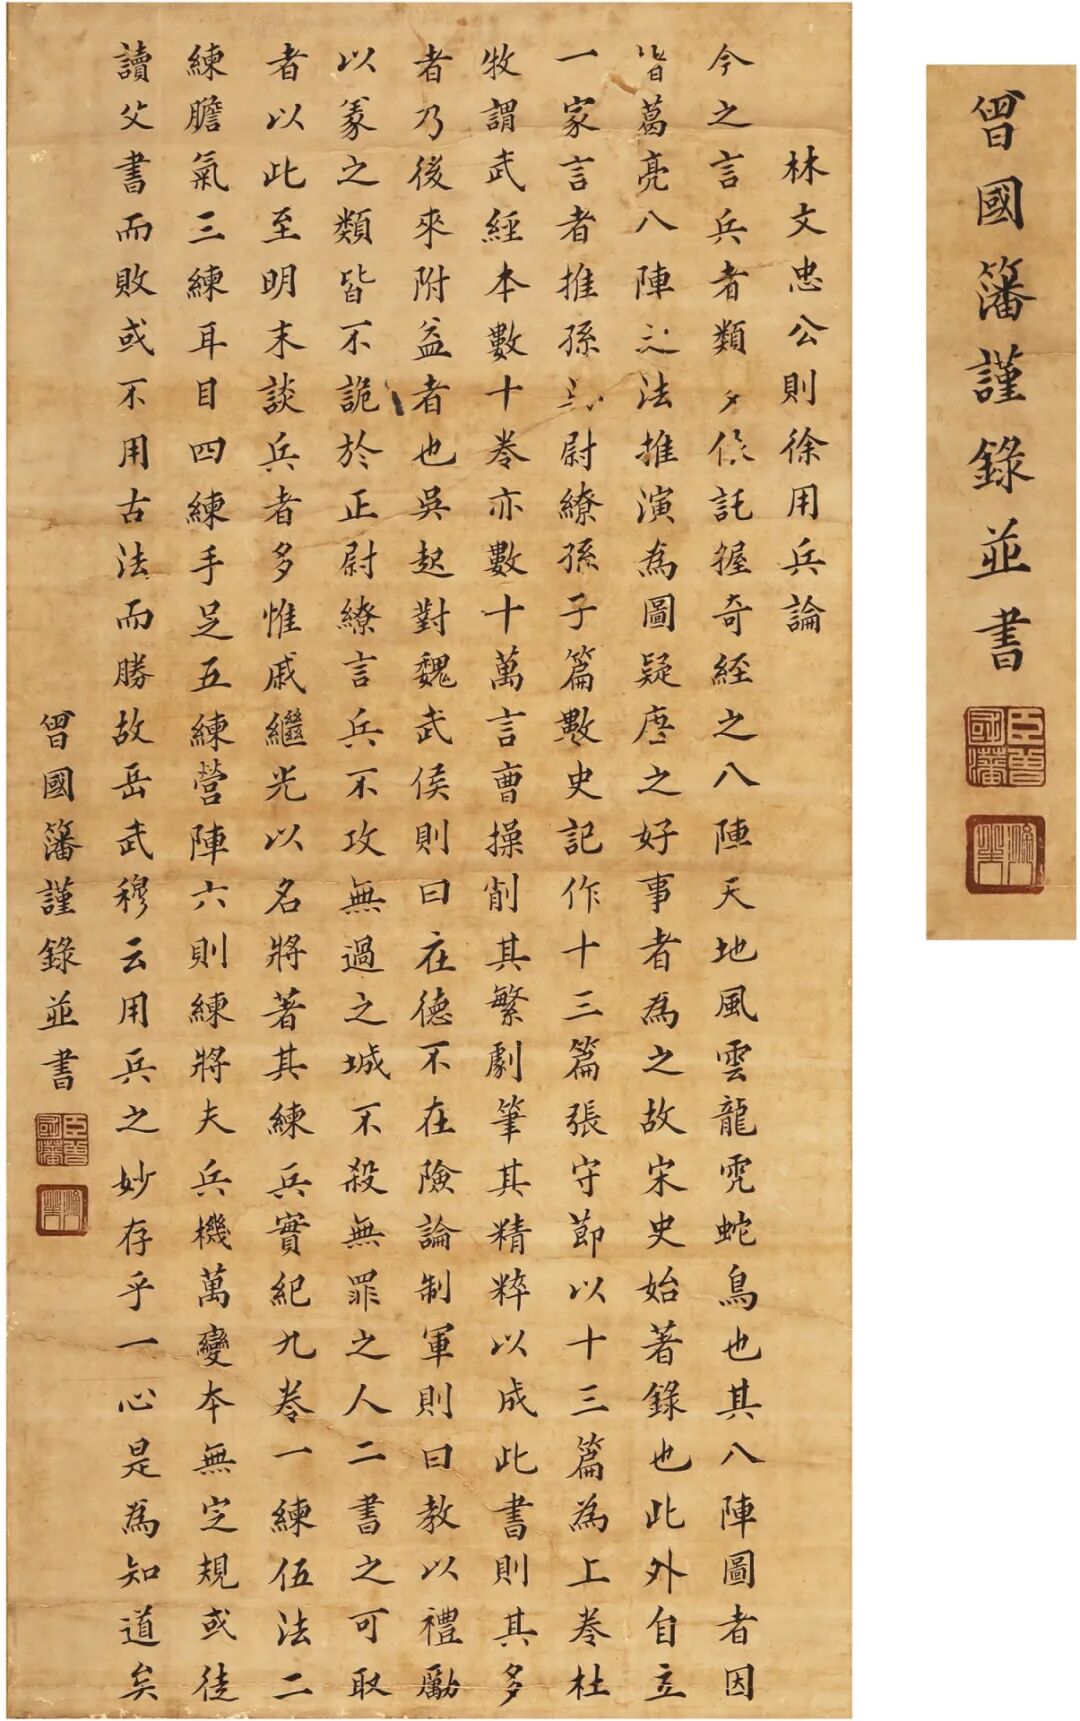 林文忠公則徐用兵論
今之言兵者類多依託握奇經之八陣天地風雲龍虎蛇鳥也其八陣圖者因
諸葛亮八陣之法推演為圖疑唐之好事者為之故宋史始著錄也此外自立
一家言者推孫吳尉繚孫子篇數史記作十三篇張守節以十三篇為上卷杜
牧謂武經本數十卷亦數十萬言曹操削其繁劇筆其精粹以成此書則其多
者乃後來附益者也吳起對魏武侯則曰在德不在險論制軍則曰教以禮勵
以義之類皆不詭於正尉繚言兵不攻無過之城不殺無罪之人二書之可取
者以此至明末談兵者多惟戚繼光以名將著其練兵實紀九卷一練伍法二
練膽氣三練耳目四練手足五練營陣六則練將夫兵機萬變本無定規或徒
讀父書而敗或不用古法而勝故岳武穆云用兵之妙存乎一心是為知道矣
曾國藩謹錄並書
臣曾國藩
曾國藩謹錄並書
臣曾國藩